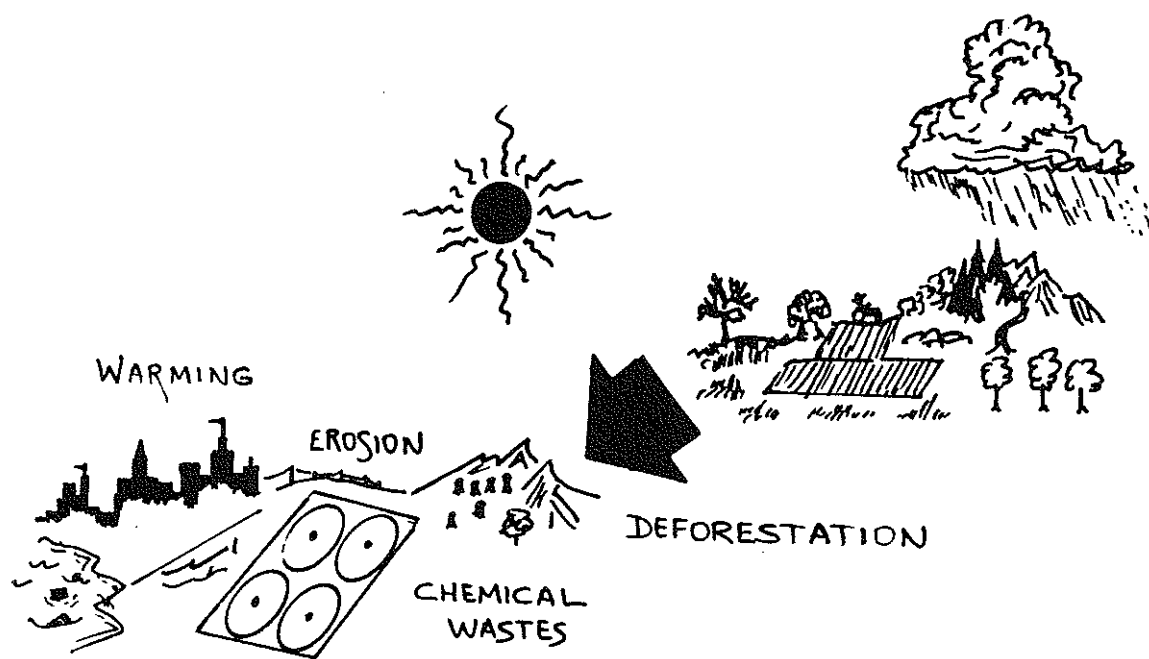 WARMING
EROSION
DEFORESTATION
CHEMICAL
WASTES